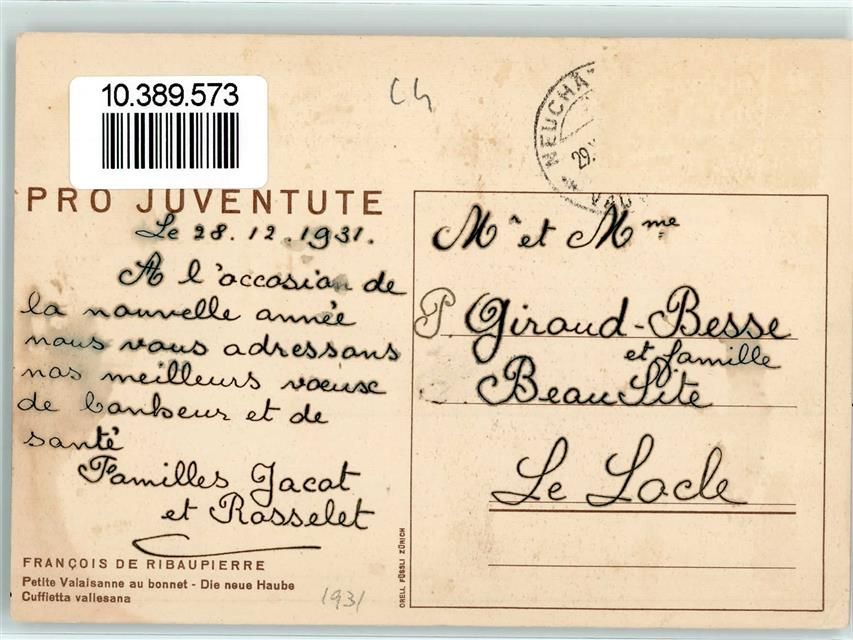 10.389.573
Ch
NEUCHÂ
29.
VAU
PRO JUVENTUTE
Le 28.12.1931.
A l'occasion de
la nouvelle année
nous vous adressons
nos meilleurs voeuse
de bonheur et de
santé
Familles Jacot
et Rosselet
FRANÇOIS DE RIBAUPIERRE
Petite Valaisanne au bonnet - Die neue Haube
Cuffietta vallesana
1931
ORELL FÜSSLI ZÜRICH
Mr et Mme
P Giroud-Besse
et famille
Beau Site
Le Locle